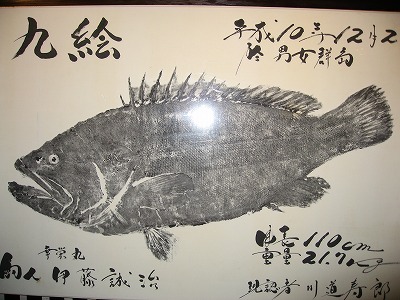 九絵
平成10年12月2
於 男女群島
身長 110cm
重量 21.7kg
幸栄丸
釣人 伊藤誠治
現認者 川道寿郎